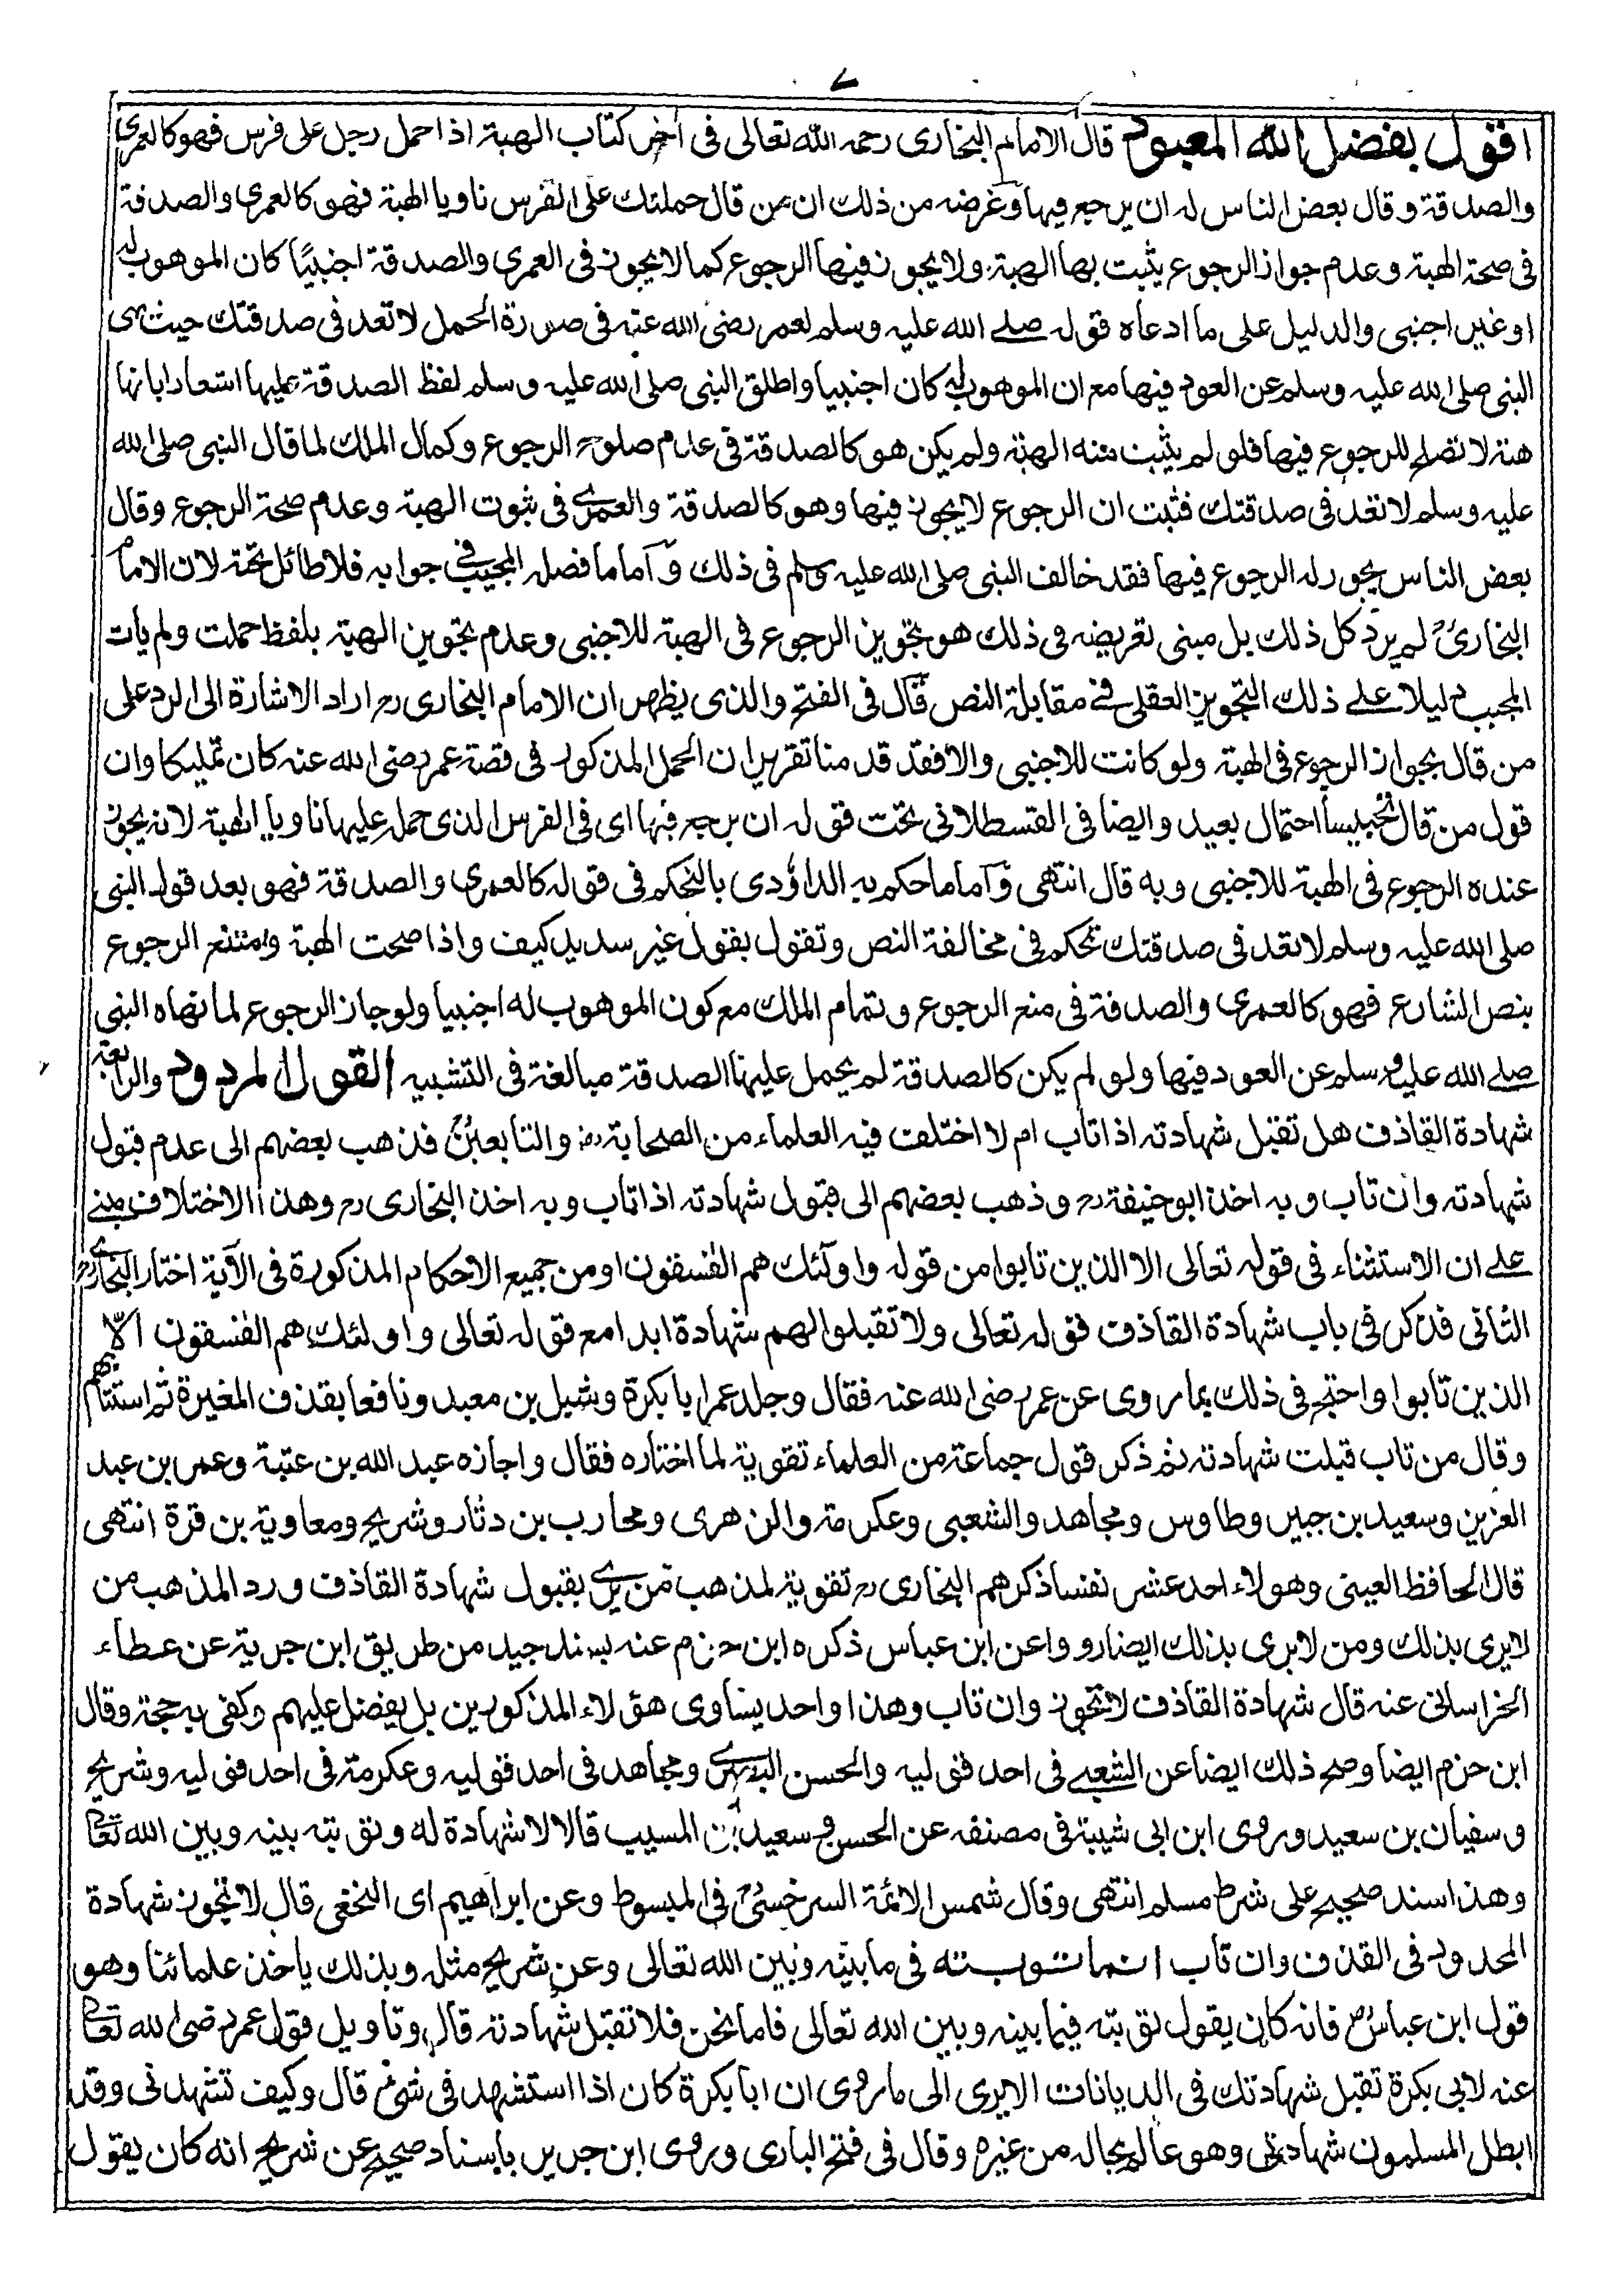 ٧
اقول بفضل الله المعبود قال الامام البخارى رحمه الله تعالى فى اٰخر كتاب الهبة اذا حمل رجل على فرس فهو كالعمرى
والصدقة وقال بعض الناس له ان يرجع فيها وغرضه من ذلك ان من قال حملتك على الفرس ناويا الهبة فهو كالعمرى والصدقة
فى صحة الهبة وعدم جواز الرجوع يثبت بها الهبة ولا يجوز فيها الرجوع كما لا يجوز فى العمرى والصدقة اجنبيًا كان الموهوب له
او غير اجنبى والدليل على ما ادعاه قوله صلے الله عليه وسلم لعمر رضى الله عنه فى صورة الحمل لا تعد فى صدقتك حيث نهى
النبى صلى الله عليه وسلم عن العود فيها مع ان الموهوب له كان اجنبيا واطلق النبى صلى الله عليه وسلم لفظ الصدقة عليها اشعارا بانها
هبة لا تصلح للرجوع فيها فلو لم يثبت منه الهبة ولم يكن هو كالصدقة فى عدم صلوح الرجوع وكمال الملك لما قال النبى صلى الله
عليه وسلم لا تعد فى صدقتك فثبت ان الرجوع لا يجوز فيها وهو كالصدقة والعمرى فى ثبوت الهبة وعدم صحة الرجوع وقال
بعض الناس يجوز له الرجوع فيها فقد خالف النبى صلى الله عليه وسلم فى ذلك وَاما ما فصله المجيب فى جوابه فلا طائل تحته لان الامام
البخارىؒ لم يرد كل ذلك بل مبنى تعريضه فى ذلك هو تجويز الرجوع فى الهبة للاجنبى وعدم تجويز الهبة بلفظ حملت ولم يات
المجيب دليلا علے ذلك التجويز العقلى فے مقابلة النص قال فى الفتح والذى يظهر ان الامام البخارى رح اراد الاشارة الى الرد على
من قال بجواز الرجوع فى الهبة ولو كانت للاجنبى والا فقد قدمنا تقرير ان الحمل المذكور فى قصة عمر رضى الله عنه كان تمليكا وان
قول من قال تحبيسا احتمال بعيد وايضا فى القسطلانى تحت قوله ان يرجع فيها اى فى الفرس الذى حمله عليها ناويا الهبة لانه يجوز
عنده الرجوع فى الهبة للاجنبى وبه قال انتهى وَاما ما حكم به الداوٗدى بالتحكم فى قوله كالعمرى والصدقة فهو بعد قول النبى
صلى الله عليه وسلم لا تعد فى صدقتك تحكم فى مخالفة النص وتقول بقول غير سديد كيف واذا صحت الهبة وامتنع الرجوع
بنص الشارع فهو كالعمرى والصدقة فى منع الرجوع وتمام الملك مع كون الموهوب له اجنبيا ولو جاز الرجوع لما نهاه النبى
صلے الله عليه وسلم عن العود فيها ولو لم يكن كالصدقة لم يحمل عليها الصدقة مبالغة فى التشبيه القول المردود والرابعة
شهادة القاذف هل تقبل شهادته اذا تاب ام لا اختلف فيه العلماء من الصحابة رض والتابعينؒ فذهب بعضهم الى عدم قبول
شهادته وان تاب وبه اخذ ابو حنيفة رح وذهب بعضهم الى قبول شهادته اذا تاب وبه اخذ البخارى رح وهذا الاختلاف مبنے
علے ان الاستثناء فى قوله تعالى الا الذين تابوا من قوله واولٰئك هم الفٰسقون او من جميع الاحكام المذكورة فى الآية اختار البخارى رح
الثانى فذكر فى باب شهادة القاذف قوله تعالى ولا تقبلوا لهم شهادة ابدا مع قوله تعالى واولئك هم الفٰسقون الّا
الذين تابوا واحتج فى ذلك بما روى عن عمر رضى الله عنه فقال وجلد عمر ابا بكرة وشبل بن معبد ونافعا بقذف المغيرة ثم استتابهم
وقال من تاب قبلت شهادته ثم ذكر قول جماعة من العلماء تقوية لما اختاره فقال واجازه عبد الله بن عتبة وعمر بن عبد
العزيز وسعيد بن جبير وطاوس ومجاهد والشعبى وعكرمة والزهرى ومحارب بن دثار وشريح ومعاوية بن قرة انتهى
قال الحافظ العينى وهولاء احد عشر نفسا ذكرهم البخارى رح تقوية لمذهب من يرى بقبول شهادة القاذف ورد المذهب من
لا يرى بذلك ومن لا يرى بذلك ايضا رووا عن ابن عباس ذكره ابن حزم عنه بسند جيد من طريق ابن جرية عن عطاء
الخراسانى عنه قال شهادة القاذف لا تجوز وان تاب وهذا واحد يساوى هؤلاء المذكورين بل يفضل عليهم وكفى به حجة وقال
ابن حزم ايضا وصح ذلك ايضا عن الشعبے فى احد قوليه والحسن البصرى ومجاهد فى احد قوليه وعكرمة فى احد قوليه وشريح
وسفيان بن سعيد وروى ابن ابى شيبة فى مصنفه عن الحسن وسعيد بن المسيب قالا لا شهادة له وتوبته بينه وبين الله تعالى
وهذا سند صحيح على شرط مسلم انتهى وقال شمس الائمة السرخسىؒ فى المبسوط وعن ابراهيم اى النخعى قال لا تجوز شهادة
المحدود فى القذف وان تاب انما توبته فى ما بينه وبين الله تعالى وعن شريح مثله وبذلك ياخذ علمائنا وهو
قول ابن عباسؓ فانه كان يقول توبته فيما بينه وبين الله تعالى فاما نحن فلا تقبل شهادته قال وتاويل قول عمر رضى الله تعالى
عنه لابى بكرة تقبل شهادتك فى الديانات الا يرى الى ما روى ان ابا بكرة كان اذا استشهد فى شئ قال وكيف تشهدنى وقد
ابطل المسلمون شهادتى وهو عالم بحاله من غيره وقال فى فتح البارى وروى ابن جرير باسناد صحيح عن شريح انه كان يقول